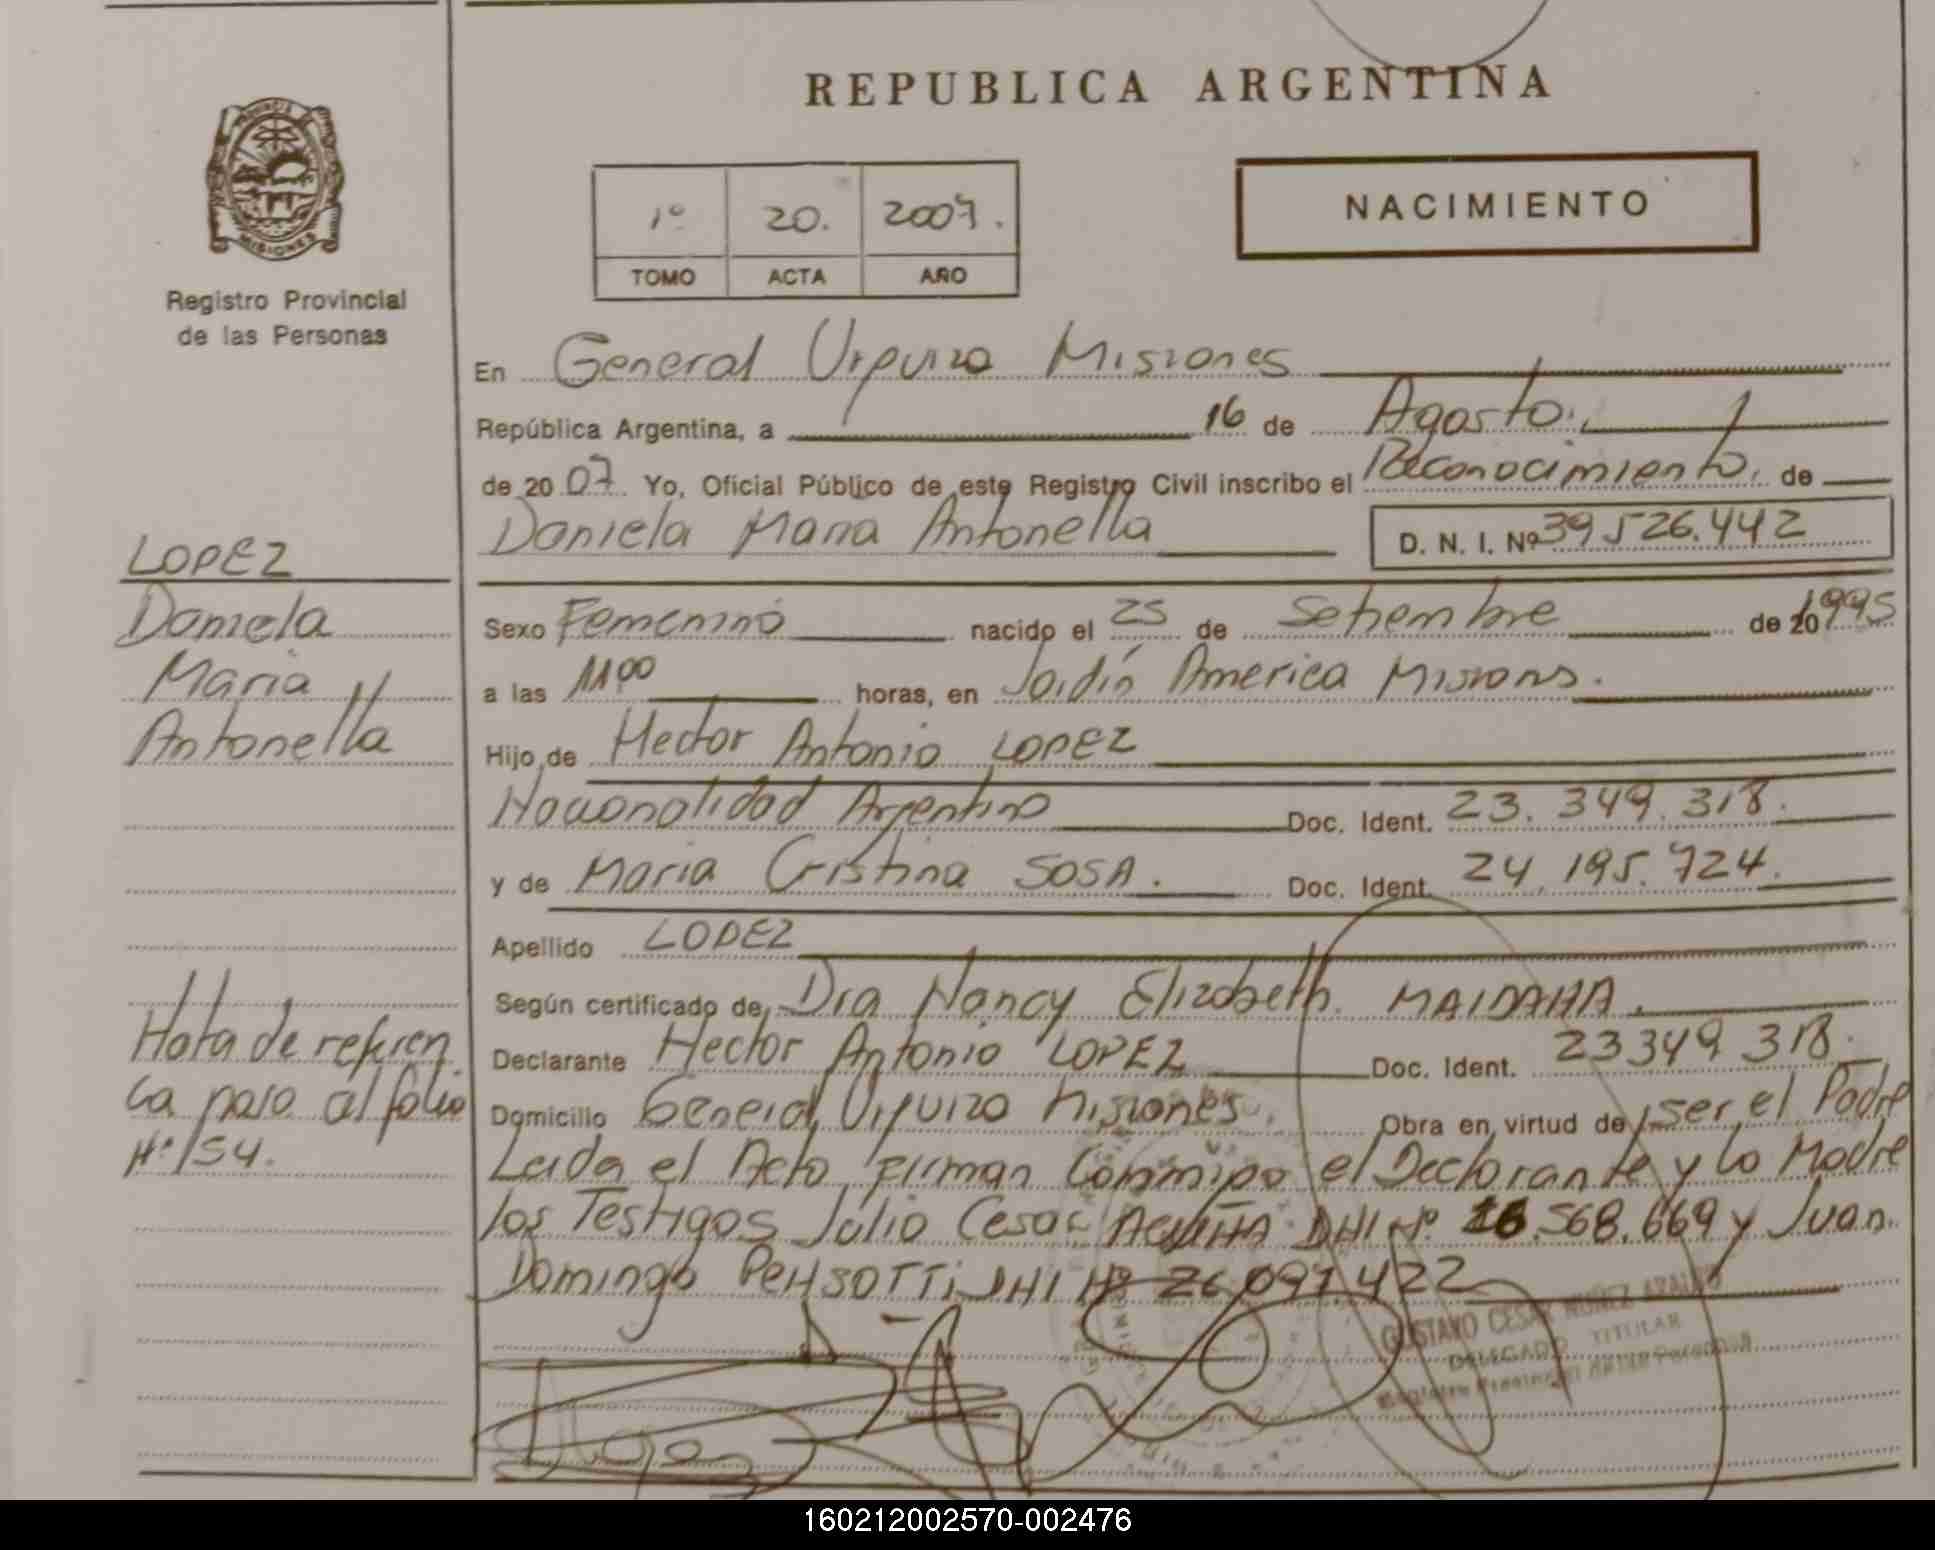 REPUBLICA ARGENTINA
PROVINCIA DE
MISIONES
Registro Provincial
de las Personas
1º 20. 2007.
TOMO ACTA AÑO
NACIMIENTO
En General Urquiza Misiones
República Argentina, a 16 de Agosto.
de 2007. Yo, Oficial Público de este Registro Civil inscribo el Reconocimiento, de
Daniela Maria Antonella D. N. I. Nº 39526.442
LOPEZ
Daniela
Maria
Antonella
Sexo Femenino nacido el 25 de Setiembre de 20 1995
a las 11,00 horas, en Jardín America Misions.
Hijo de Hector Antonio LOPEZ
Nacionalidad Argentino Doc. Ident. 23.349.318.
y de Maria Cristina SOSA. Doc. Ident. 24.195.724.
Apellido LOPEZ
Según certificado de, Dra Nancy Elizabeth MAIDANA.
Declarante Hector Antonio LOPEZ Doc. Ident. 23349.318.
Domicilio General Urquiza Misiones, Obra en virtud de ser el Padre
Leida el Acta, firman Conmigo el Declarante y la Madre
los Testigos Julio Cesar ACUÑA DNI Nº 16.568.669 y Juan
Domingo PENSOTTI DNI Nº 26.097.422
Nota de referen
ca paso al folio
Nº 154.
GUSTAVO CESAR NUÑEZ
DELEGADO TITULAR
Registro Provincial de las Personas
160212002570-002476